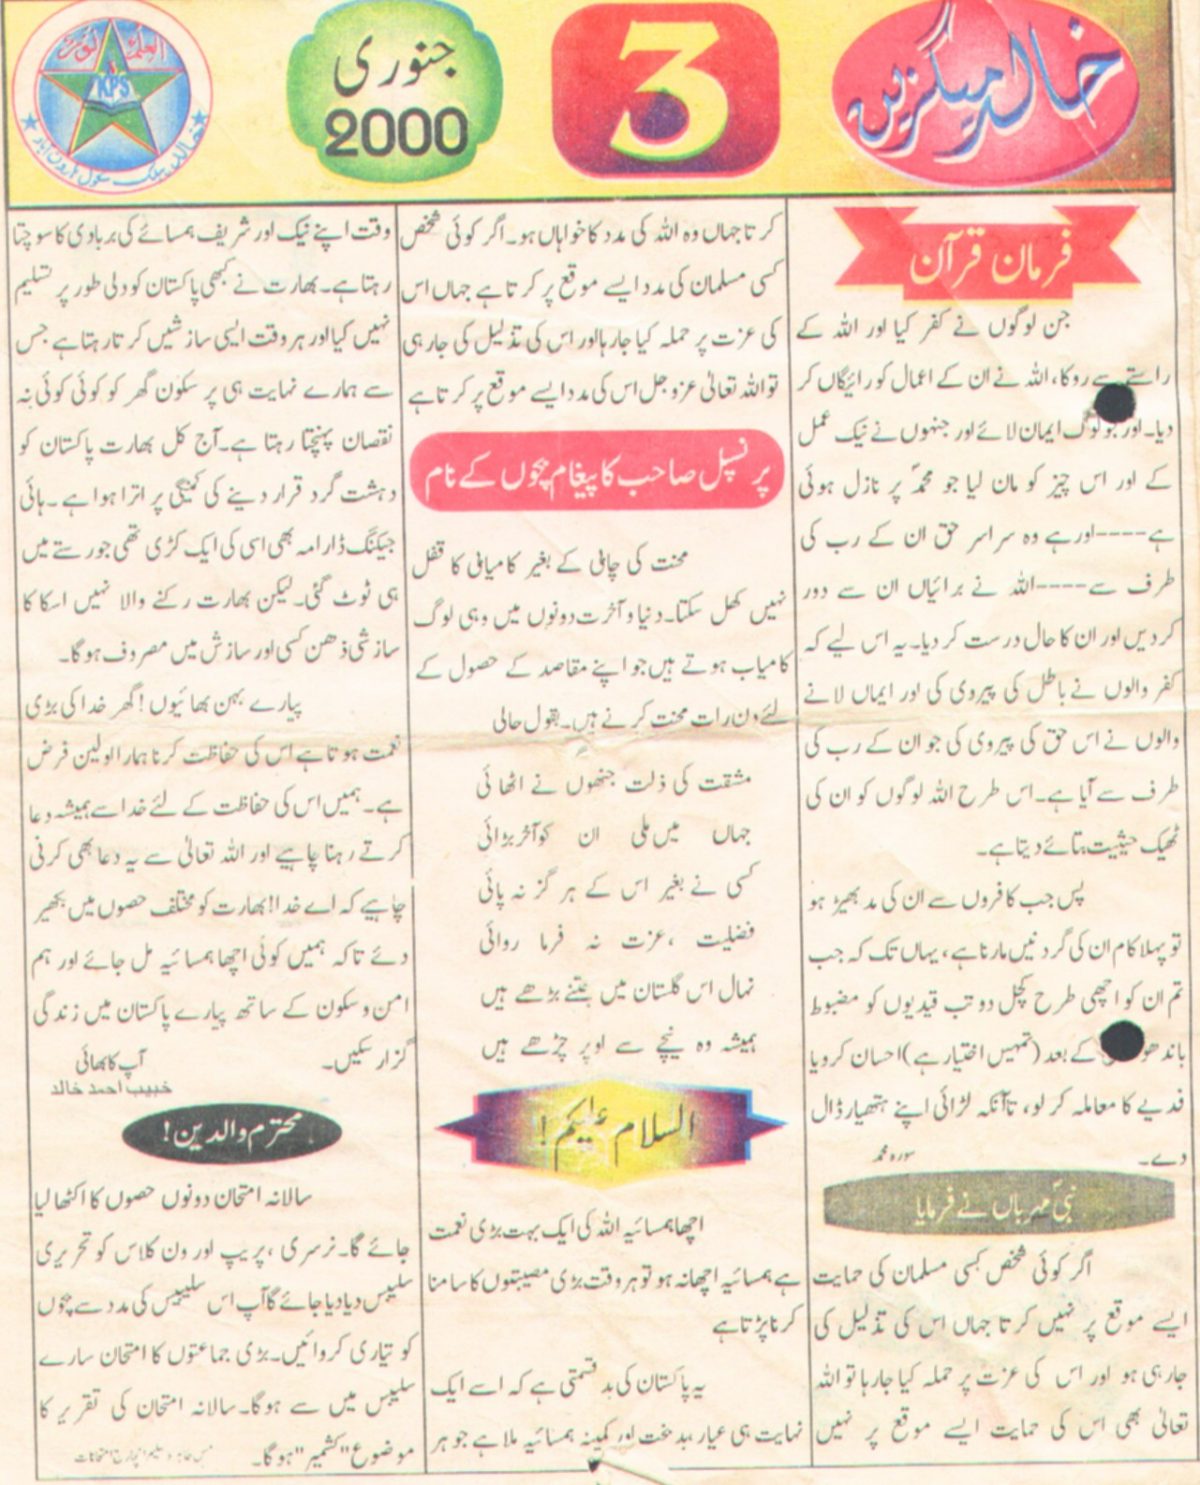 خالد میگزین
3
جنوری
2000
العلم نور
KPS
خالد پبلک سکول ہارون آباد
فرمان قرآن
جن لوگوں نے کفر کیا اور اللہ کے
راستے سے روکا، اللہ نے ان کے اعمال کو رائیگاں کر
دیا۔ اور جو لوگ ایمان لائے اور جنہوں نے نیک عمل
کے اور اس چیز کو مان لیا جو محمدؐ پر نازل ہوئی
ہے----اور ہے وہ سراسر حق ان کے رب کی
طرف سے----اللہ نے برائیاں ان سے دور
کر دیں اور ان کا حال درست کر دیا۔ یہ اس لیے کہ
کفر والوں نے باطل کی پیروی کی اور ایماں لانے
والوں نے اس حق کی پیروی کی جو ان کے رب کی
طرف سے آیا ہے۔ اس طرح اللہ لوگوں کو ان کی
ٹھیک حیثیت بتائے دیتا ہے۔
پس جب کافروں سے ان کی مد بھیڑ ہو
تو پہلا کام ان کی گردنیں مارنا ہے، یہاں تک کہ جب
تم ان کو اچھی طرح کچل دو تب قیدیوں کو مضبوط
باندھو کے بعد (تمہیں اختیار ہے) احسان کرو یا
فدیے کا معاملہ کر لو، تاآنکہ لڑائی اپنے ہتھیار ڈال
دے۔ سورہ محمد
نبیؐ مہرباں نے فرمایا
اگر کوئی شخص کسی مسلمان کی حمایت
ایسے موقع پر نہیں کرتا جہاں اس کی تذلیل کی
جارہی ہو اور اس کی عزت پر حملہ کیا جارہا تو اللہ
تعالیٰ بھی اس کی حمایت ایسے موقع پر نہیں
کرتا جہاں وہ اللہ کی مدد کا خواہاں ہو۔ اگر کوئی شخص
کسی مسلمان کی مدد ایسے موقع پر کرتا ہے جہاں اس
کی عزت پر حملہ کیا جارہا اور اس کی تذلیل کی جارہی
تو اللہ تعالیٰ عزوجل اس کی مدد ایسے موقع پر کرتا ہے
پرنسپل صاحب کا پیغام بچوں کے نام
محنت کی چابی کے بغیر کامیابی کا قفل
نہیں کھل سکتا۔ دنیا و آخرت دونوں میں وہی لوگ
کامیاب ہوتے ہیں جو اپنے مقاصد کے حصول کے
لئے دن رات محنت کرنے ہیں۔ بقول حالی
مشقت کی ذلت جنھوں نے اٹھائی
جہاں میں ملی ان کو آخر بڑائی
کسی نے بغیر اس کے ہر گز نہ پائی
فضلیت ،عزت نہ فرما روائی
نہال اس گلستان میں جتنے بڑھے ہیں
ہمیشہ وہ نیچے سے اوپر چڑھے ہیں
السلام علیکم!
اچھا ہمسائیہ اللہ کی ایک بہت بڑی نعمت
ہے ہمسائیہ اچھا نہ ہو تو ہر وقت بڑی مصیبتوں کا سامنا
کرنا پڑتا ہے
یہ پاکستان کی بد قسمتی ہے کہ اسے ایک
نہایت ہی عیار بدبخت اور کمینہ ہمسائیہ ملا ہے جو ہر
وقت اپنے نیک اور شریف ہمسائے کی بربادی کا سوچتا
رہتا ہے۔ بھارت نے کبھی پاکستان کو دلی طور پر تسلیم
نہیں کیا اور ہر وقت ایسی سازشیں کرتا رہتا ہے جس
سے ہمارے نہایت ہی پر سکون گھر کو کوئی کوئی نہ
نقصان پہنچتا رہتا ہے۔ آج کل بھارت پاکستان کو
دہشت گرد قرار دینے کی کمینگی پر اترا ہوا ہے۔ ہائی
جیکنگ ڈرامہ بھی اسی کی ایک کڑی تھی جو رستے میں
ہی ٹوٹ گئی۔ لیکن بھارت رکنے والا نہیں اسکا کا
سازشی ذھن کسی اور سازش میں مصروف ہوگا۔
پیارے بہن بھائیوں! گھر خدا کی بڑی
نعمت ہوتا ہے اس کی حفاظت کرنا ہمارا اولین فرض
ہے۔ ہمیں اس کی حفاظت کے لئے خدا سے ہمیشہ دعا
کرتے رہنا چاہیے اور اللہ تعالیٰ سے یہ دعا بھی کرنی
چاہیے کہ اے خدا! بھارت کو مختلف حصوں میں بکھیر
دئے تاکہ ہمیں کوئی اچھا ہمسائیہ مل جائے اور ہم
امن و سکون کے ساتھ پیارے پاکستان میں زندگی
گزار سکیں۔ آپ کا بھائی
خبیب احمد خالد
محترم والدین!
سالانہ امتحان دونوں حصوں کا اکٹھا لیا
جائے گا۔ نرسری ،پریپ اور ون کلاس کو تحریری
سلیبس دیا دیا جائے گا آپ اس سلیبس کی مدد سے بچوں
کو تیاری کروائیں۔ بڑی جماعتوں کا امتحان سارے
سلیبس میں سے ہوگا۔ سالانہ امتحان کی تقریر کا
موضوع "کشمیر" ہوگا۔ انچارج امتحانات